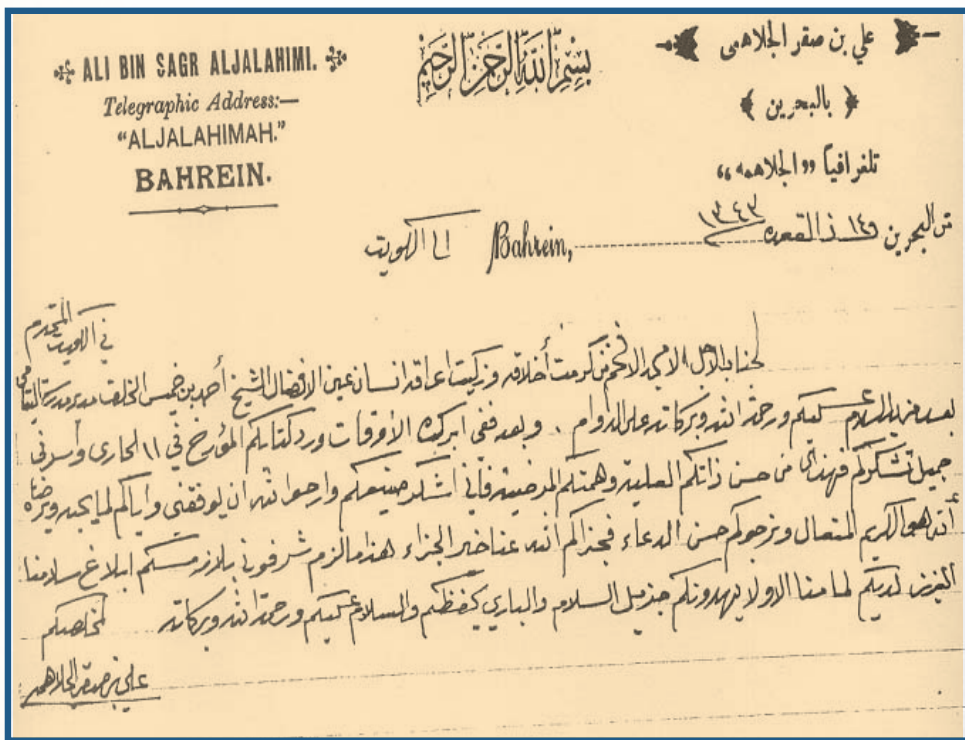 ALI BIN SAGR ALJALAHIMI.
Telegraphic Address:—
"ALJALAHIMAH."
BAHREIN.
بسم الله الرحمن الرحيم
علي بن صقر الجلاهمى
﴿ بالبحرين ﴾
تلغرافياً „الجلاهمه“
من البحرين في ١٤ ذ القعده ١٣٤٣ Bahrein, الى الكويت
لجناب الاجل الامجد الافخم من كرمت أخلاقه وزكيت اعراقه انسان عين الافضال الشيخ أحمد بن خميس الخلف مدير مدرسة المحترم
في الكويت
بعد مزيد السلام عليكم ورحمة الله وبركاته على الدوام . وبعد ففي ابرك الأوقات ورد كتابكم المؤرخ في ١١ الجاري وأسرني
جميل تشكركم فهذا من حسن ذاتكم العلية وهمتكم المرضية فأني اشكر صنيعكم وارجوا الله ان يوفقني واياكم لما يحبه ويرضاه
أنه هو الكريم المتعال ونرجوكم حسن الدعاء فجزاكم الله عنا خير الجزاء هذا مالزم شرفونى بلازمكم ابلاغ سلامنا
العزيز لديكم كما منا الاولاد يهدونكم جزيل السلام والباري يحفظكم والسلام عليكم ورحمة الله وبركاته مخلصكم
علي بن صقر الجلاهمه